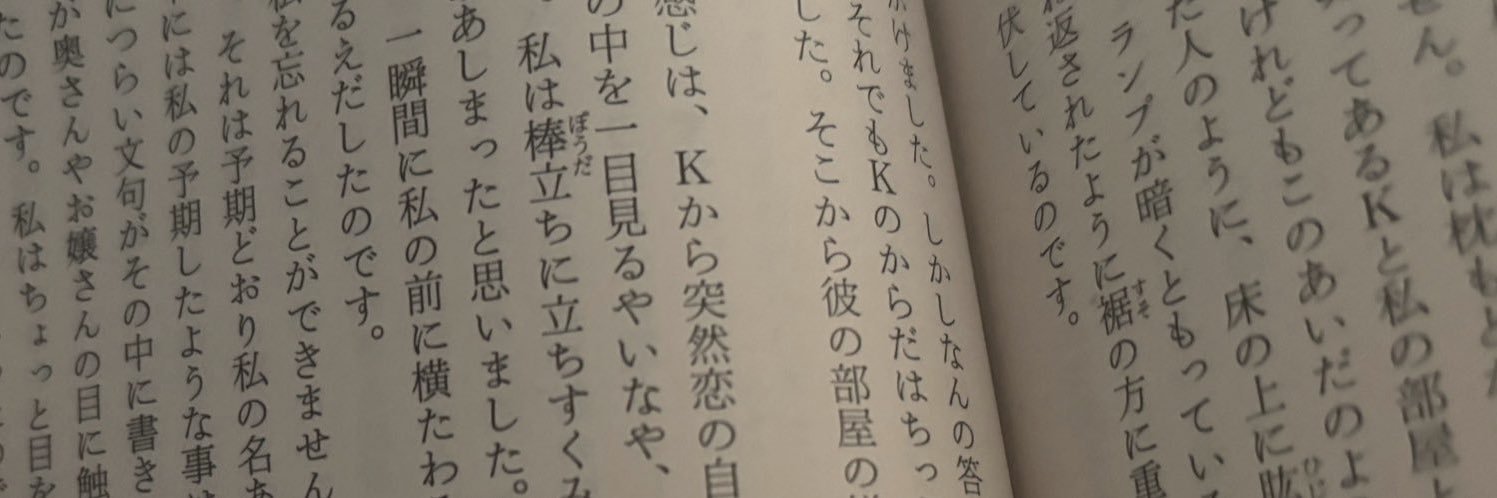 せん。私は枕もとか
ってあるKと私の部屋と
けれどもこのあいだのよ
た人のように、床の上に肱
ひじ
ランプが暗くともってい
返されたように裾の方に重
すそ
伏しているのです。
かけました。しかしなんの答
それでもKのからだはちっ
した。そこから彼の部屋の
感じは、Kから突然恋の自
の中を一目見るやいなや、
私は棒立ちに立ちすくみ
ぼうだ
あしまったと思いました。
一瞬間に私の前に横たわ
るえだしたのです。
私を忘れることができません
それは予期どおり私の名あ
には私の予期したような事は
につらい文句がその中に書き
か奥さんやお嬢さんの目に触
たのです。私はちょっと目を